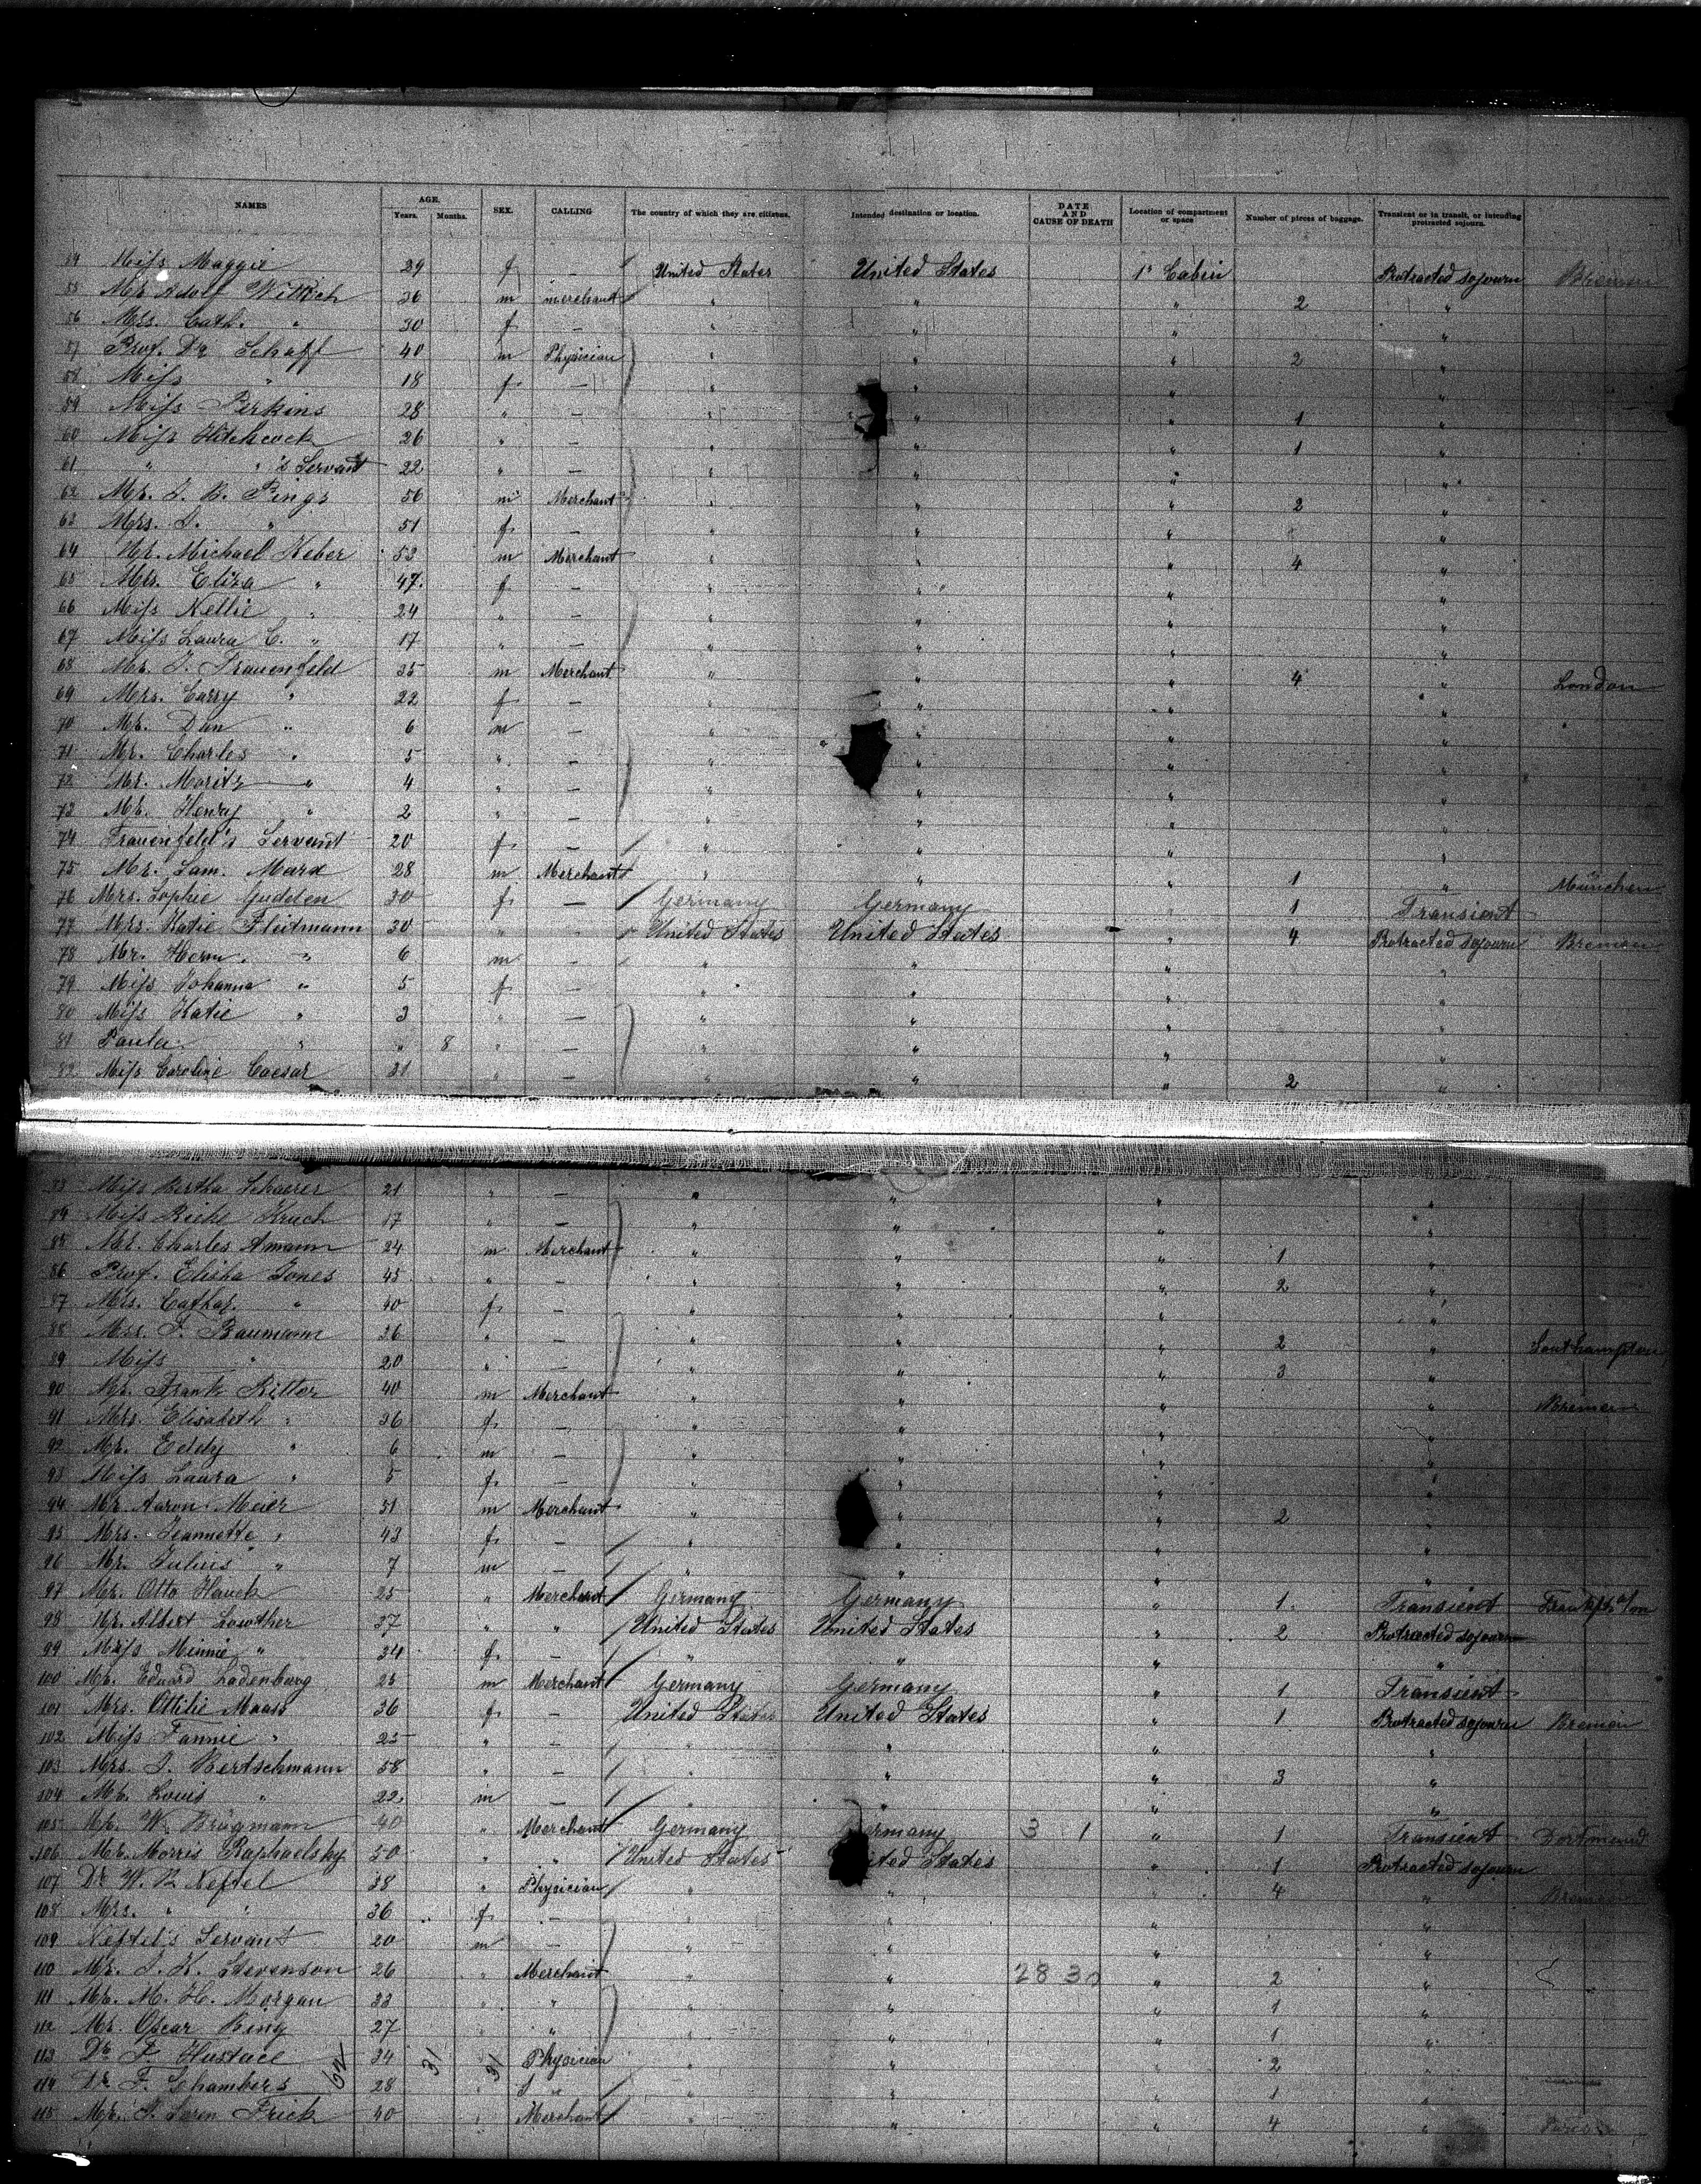 NAMES AGE. Years. Months. SEX. CALLING The country of which they are citizens. Intended destination or location. DATE AND CAUSE OF DEATH Location of compartment or space Number of pieces of baggage. Transient or in transit, or intending protracted sojourn.
54 Miss Maggie 29 f — United States United States 1st Cabin Protracted sojourn Bremen
55 Mr Adolf Wittich 36 m merchant " " " 2 "
56 Mrs. Cath. " 30 f — " " " "
57 Prof. Dr Schaff 40 m Physician " " " 2 "
58 Miss " 18 f — " " " "
59 Miss Perkins 28 " — " " " 1 "
60 Miss Hitchcock 26 " — " " " 1 "
61 " "'s Servant 22 " — " " " "
62 Mr. L. B. Pings 56 m Merchant " " " 2 "
63 Mrs. L. " 51 f — " " " "
64 Mr. Michael Heber 53 m Merchant " " " 4 "
65 Mrs. Eliza " 47 f — " " " "
66 Miss Nellie " 24 " — " " " "
67 Miss Laura C. " 17 " — " " " "
68 Mr. J. Frauenfeld 35 m Merchant " " " 4 " London
69 Mrs. Carry " 22 f — " " " "
70 Mr. Dan " 6 m — " " " "
71 Mr. Charles " 5 " — " " " "
72 Mr. Moritz " 4 " — " " " "
73 Mr. Henry " 2 " — " " " "
74 Frauenfeld's Servant 20 f — " " " "
75 Mr. Sam. Marx 28 m Merchant " " " 1 " München
76 Mrs. Sophie Gudden 30 f — Germany Germany " 1 Transient
77 Mrs. Katie Fleitmann 30 " " United States United States " 4 Protracted sojourn Bremen
78 Mr. Herm. " 6 m — " " " "
79 Miss Johanna " 5 f — " " " "
80 Miss Katie " 3 " — " " " "
81 Paula " " 8 " — " " " "
82 Miss Caroline Caesar 31 " — " " " 2 "
83 Miss Bertha Schaerer 21 " — " " " "
84 Miss Riche Kruch 17 " — " " " "
85 Mr. Charles Amann 24 m Merchant " " " 1 "
86 Prof. Elisha Jones 45 " — " " " 2 "
87 Mrs. Cathar. " 40 f — " " " "
88 Mrs. F. Baumann 36 " — " " " 2 " Southampton
89 Miss " 20 " — " " " 3 "
90 Mr. Frank Ritter 40 m Merchant " " " " Bremen
91 Mrs. Elisabeth " 36 f — " " " "
92 Mr. Eddy " 6 m — " " " "
93 Miss Laura " 5 f — " " " "
94 Mr. Aaron Meier 51 m Merchant " " " 2 "
95 Mrs. Jeannette " 43 f — " " " "
96 Mr. Julius " 7 m — " " " "
97 Mr. Otto Hauck 25 " Merchant Germany Germany " 1 Transient Frankft a/m
98 Mr. Albert Lowther 37 " " United States United States " 2 Protracted sojourn
99 Miss Minnie " 34 f — " " " "
100 Mr. Eduard Ladenburg 25 m Merchant Germany Germany " 1 Transient
101 Mrs. Ottilie Maass 36 f — United States United States " 1 Protracted sojourn Bremen
102 Miss Fannie " 25 " — " " " "
103 Mrs. J. Bertschmann 58 " — " " " 3 "
104 Mr. Louis " 22 m — " " " "
105 Mr. W. Brügmann 40 " Merchant Germany Germany 3 1 " 1 Transient Dortmund
106 Mr. Morris Raphaelsky 50 " " United States United States " 1 Protracted sojourn
107 Dr W. B. Neftel 38 " Physician " " " 4 " Bremen
108 Mrs. " 36 f — " " " "
109 Neftel's Servant 20 m — " " " "
110 Mr. J. K. Stevenson 26 " Merchant " " 28 30 " 2 "
111 Mr. M. H. Morgan 33 " " " " " 1 "
112 Mr. Oscar King 27 " " " " " 1 "
113 Dr F. Hustace 34 " Physician " " " 2 "
114 Dr F. Chambers 28 " " " " " 1 "
115 Mr. J. Frick 40 " Merchant " " " 4 " Paris
62 31 31